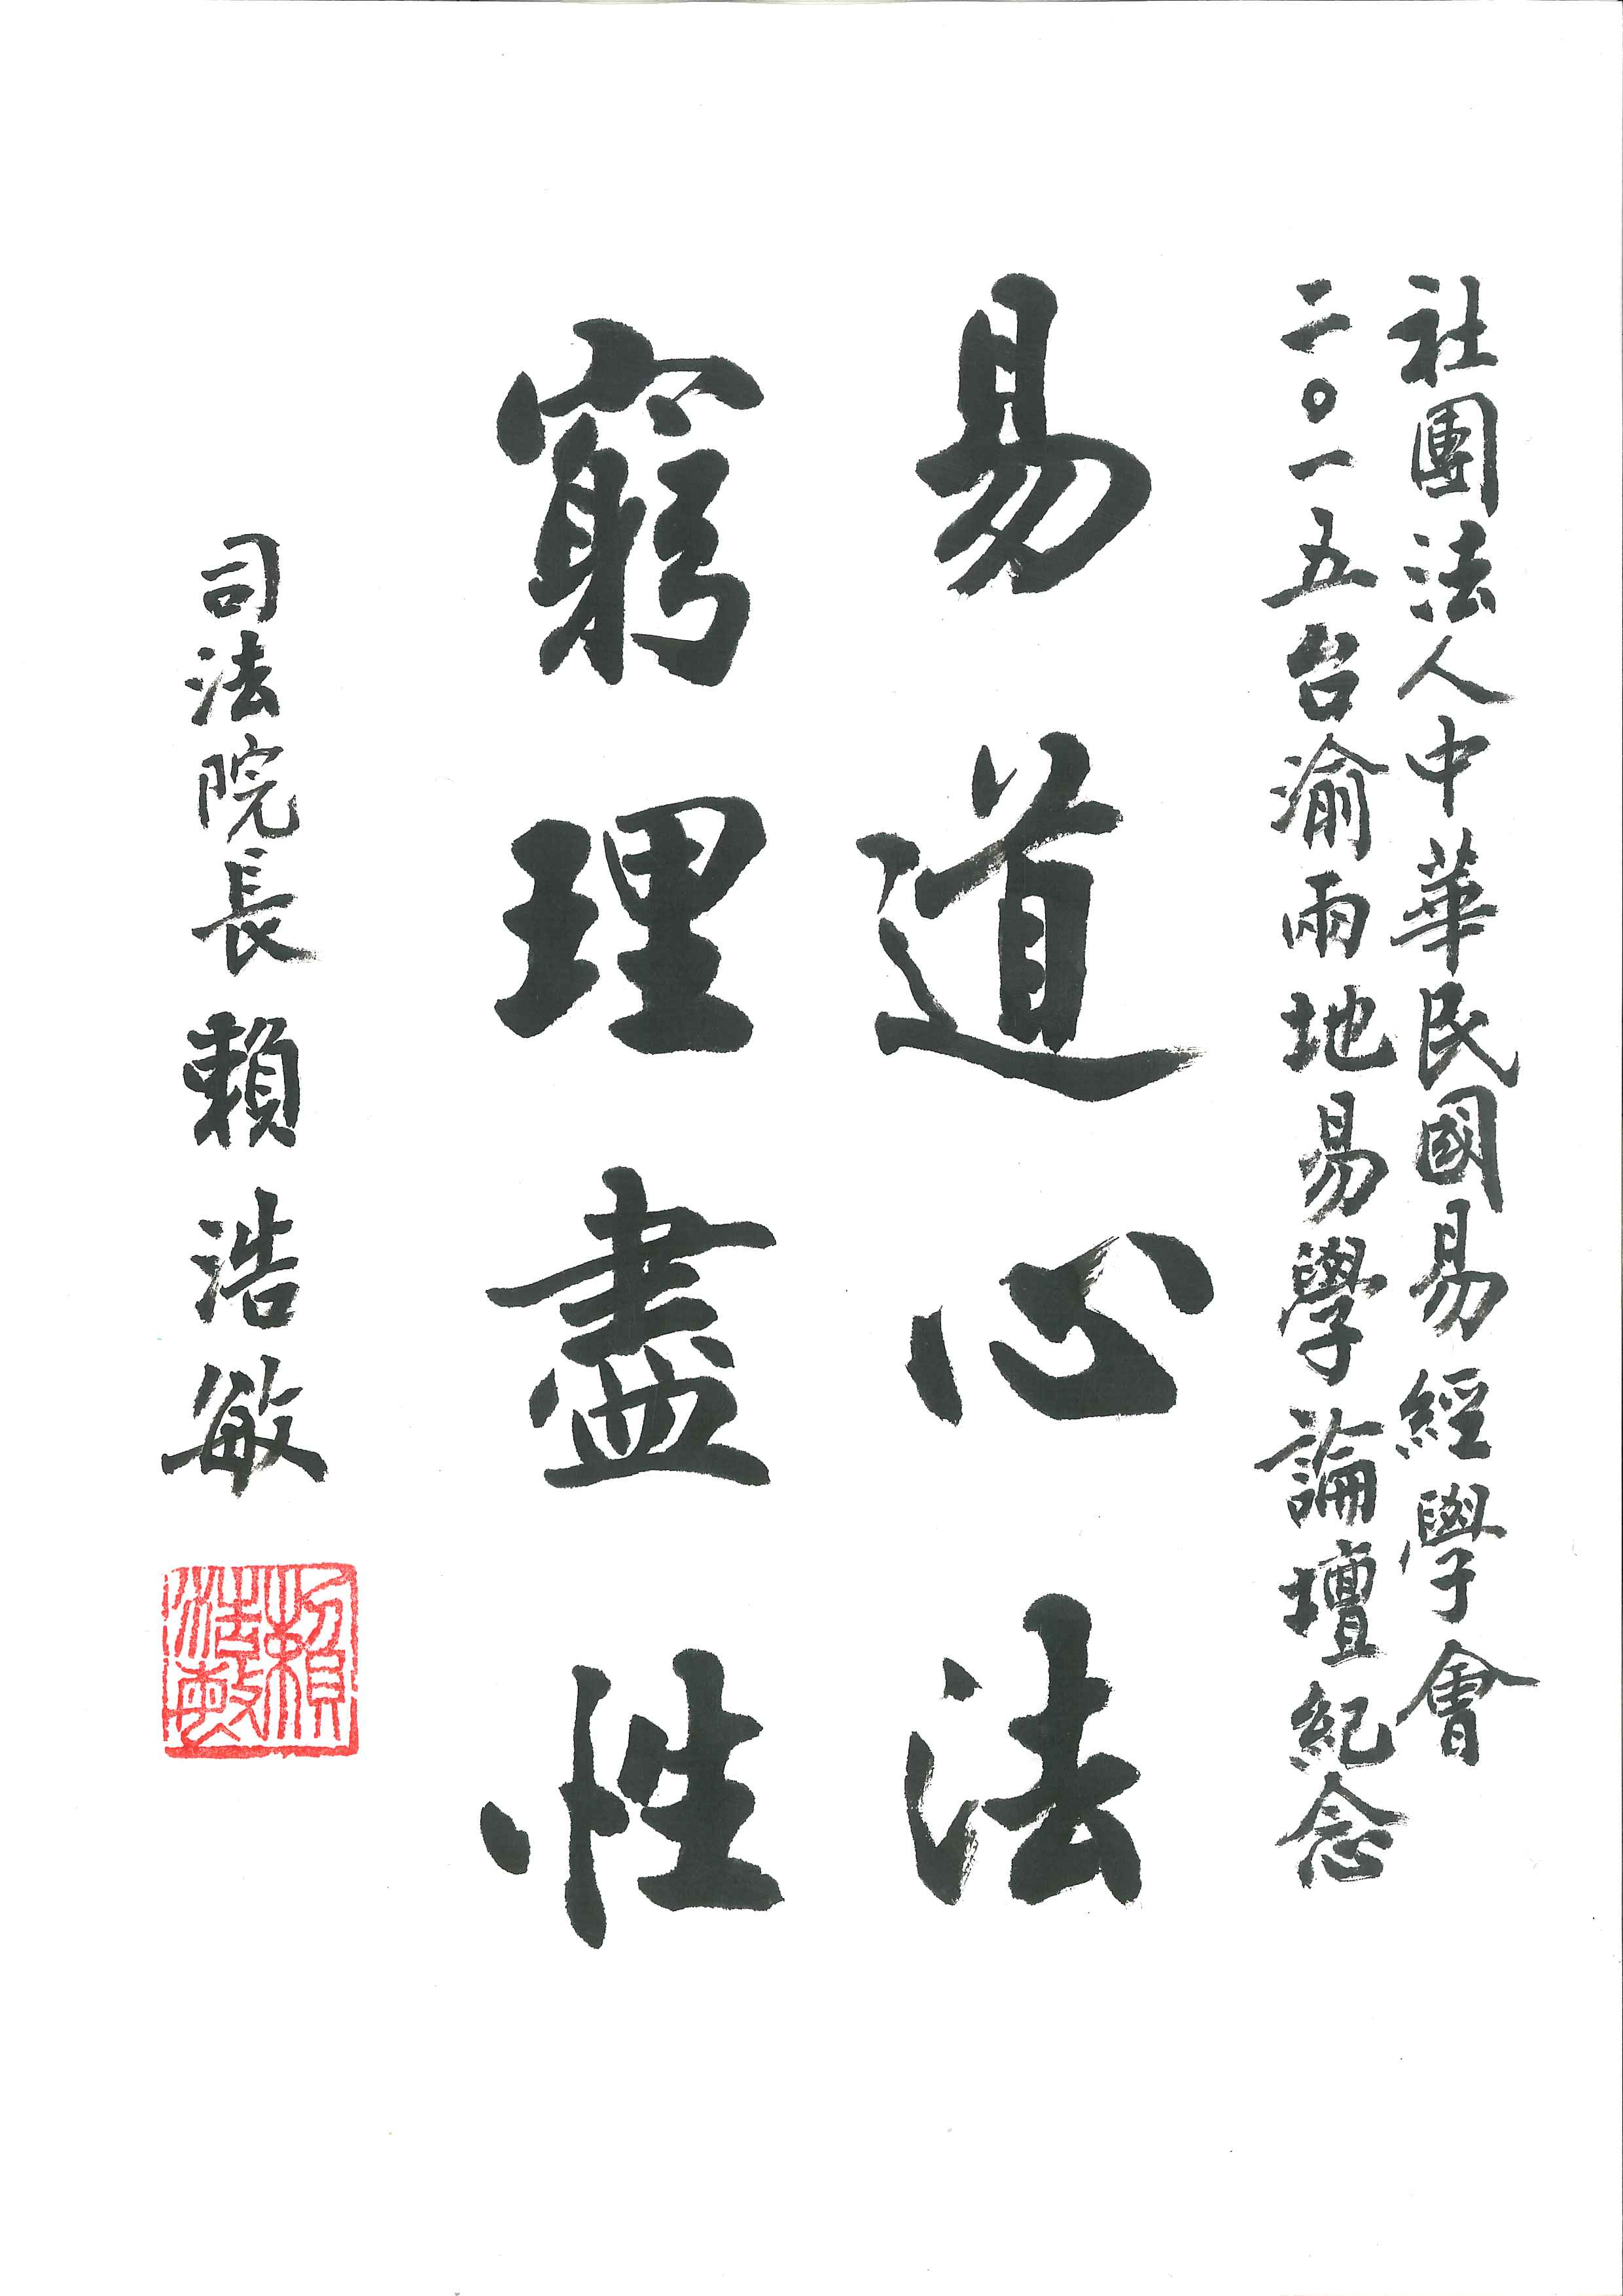 社團法人中華民國易經學會
二〇一五台渝兩地易學論壇紀念
易道心法
窮理盡性
司法院長賴浩敏
賴浩敏